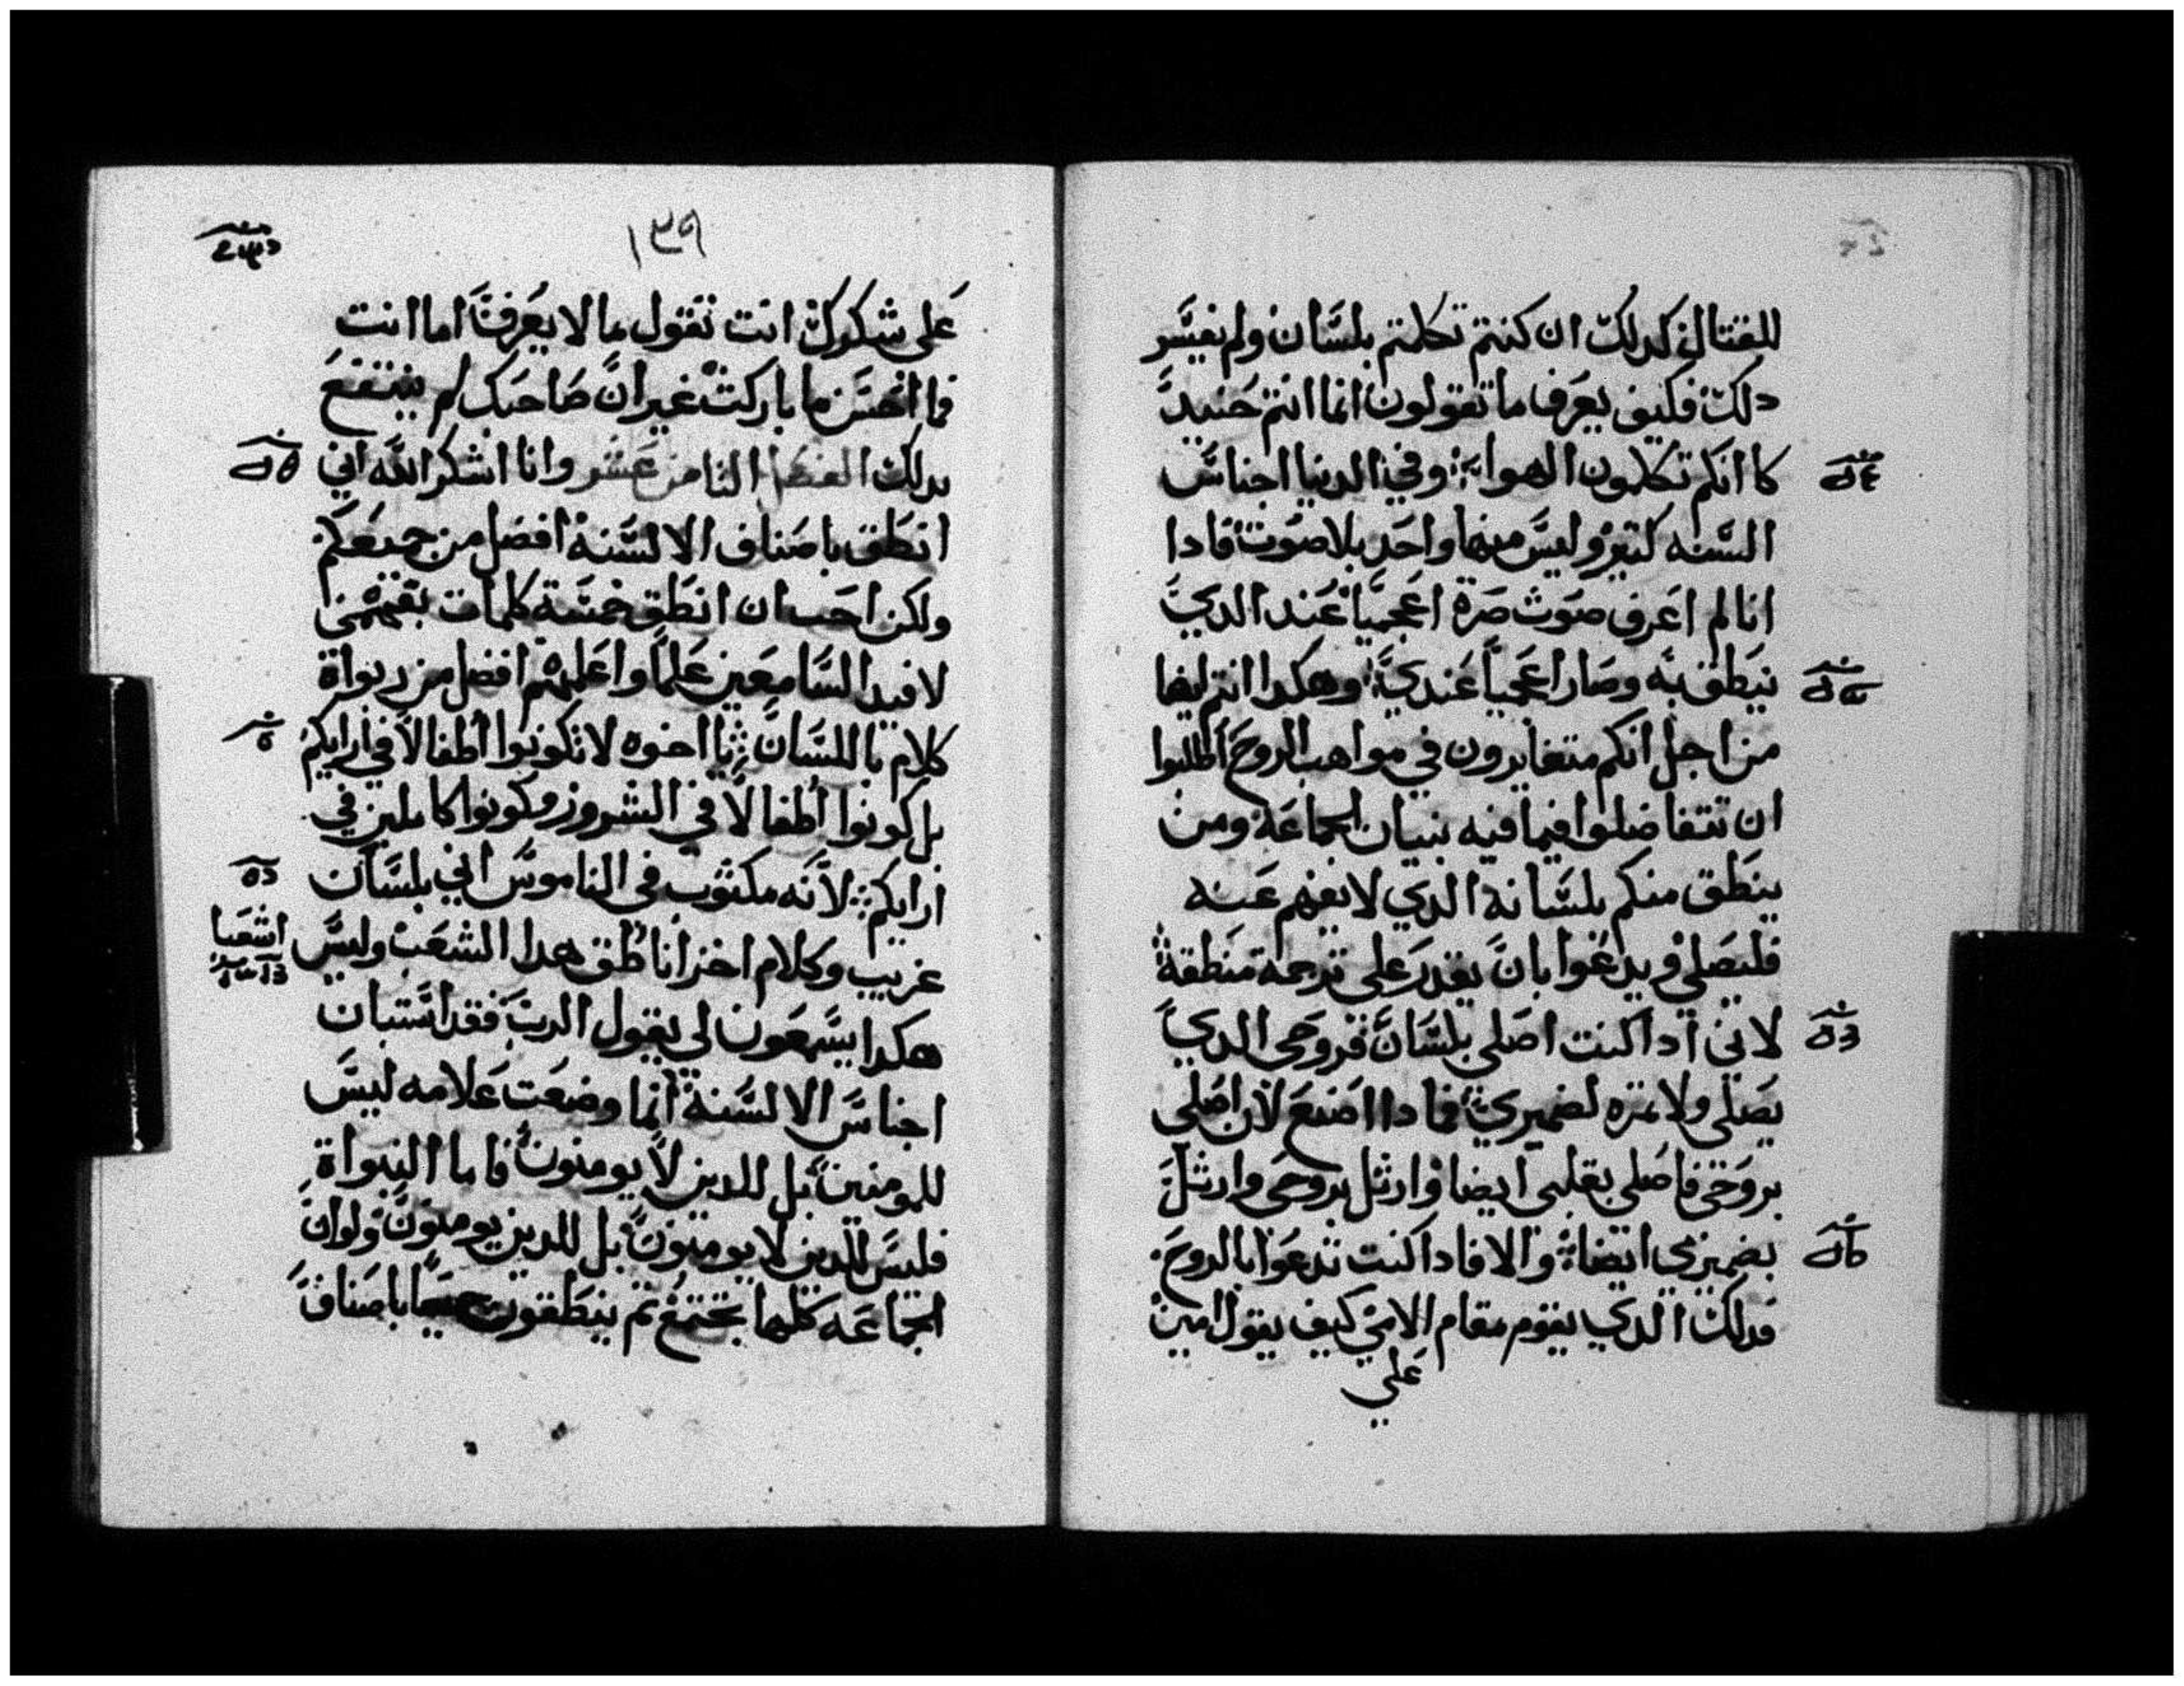 للقتال كدلك ان كنتم تكلمتم بلسان ولم نفيسر
دلك فكيف يعرف ما تقولون انما انتم حنيد
كاانكم تكلمون الهوا وفي الدنيا اجناس
السنه كتير وليس منها واحد بلا صوت فادا
انا لم اعرف صوت صرة اعجميا عند الدي
ينطق به وصار اعجميا عندي وهكدا انتم ايضا
من اجل انكم متغايرون في مواهب الروح اطلبوا
ان تتفاضلوا فيما فيه بنيان الجماعة ومن
ينطق منكم بلسانه الدي لا يفهم عنه
فليصلي ويدعوا بان يقدر على ترجمة منطقة
لاني ادا كنت اصلي بلسان فروحي الدي
يصلي ولا تمره لضميري فما دا اصنع لان اصلي
بروحي فاصلي بقلبي ايضا وارتل بروحي وارتل
بضميري ايضا والا فادا كنت تدعوا بالروح
فدلك الدي يقوم مقام الامي كيف يقول امين
علي
١٣٩
على شكرك انت تقول ما لا يعرف اما انت
فما احسن ما باركت غير ان صاحبك لم ينتفع
بدلك الثامن عشر وانا اشكر الله اني
انطق باصناف الالسنة افضل من جميعكم
ولكن احب ان انطق خمسة كلمات بفهمي
لافيد السامعين علما واعلمهم افضل من ربواة
كلام باللسان يا اخوه لا تكونوا اطفالا في ارايكم
بل كونوا اطفالا في الشرور وكونوا كاملين في
ارايكم لانه مكتوب في الناموس اني بلسان
غريب وكلام اخر اناطق هدا الشعب وليس
اشعيا
هكدا يسمعون لي يقول الرب فقد استبان
اجناس الالسنة انما وضعت علامه ليس
للمومنين بل للدين لا يومنون فاما النبواة
فليس للدين لا يومنون بل للدين يومنون ولو ان
الجماعه كلها تجتمع ثم ينطقون جميعا باصناف